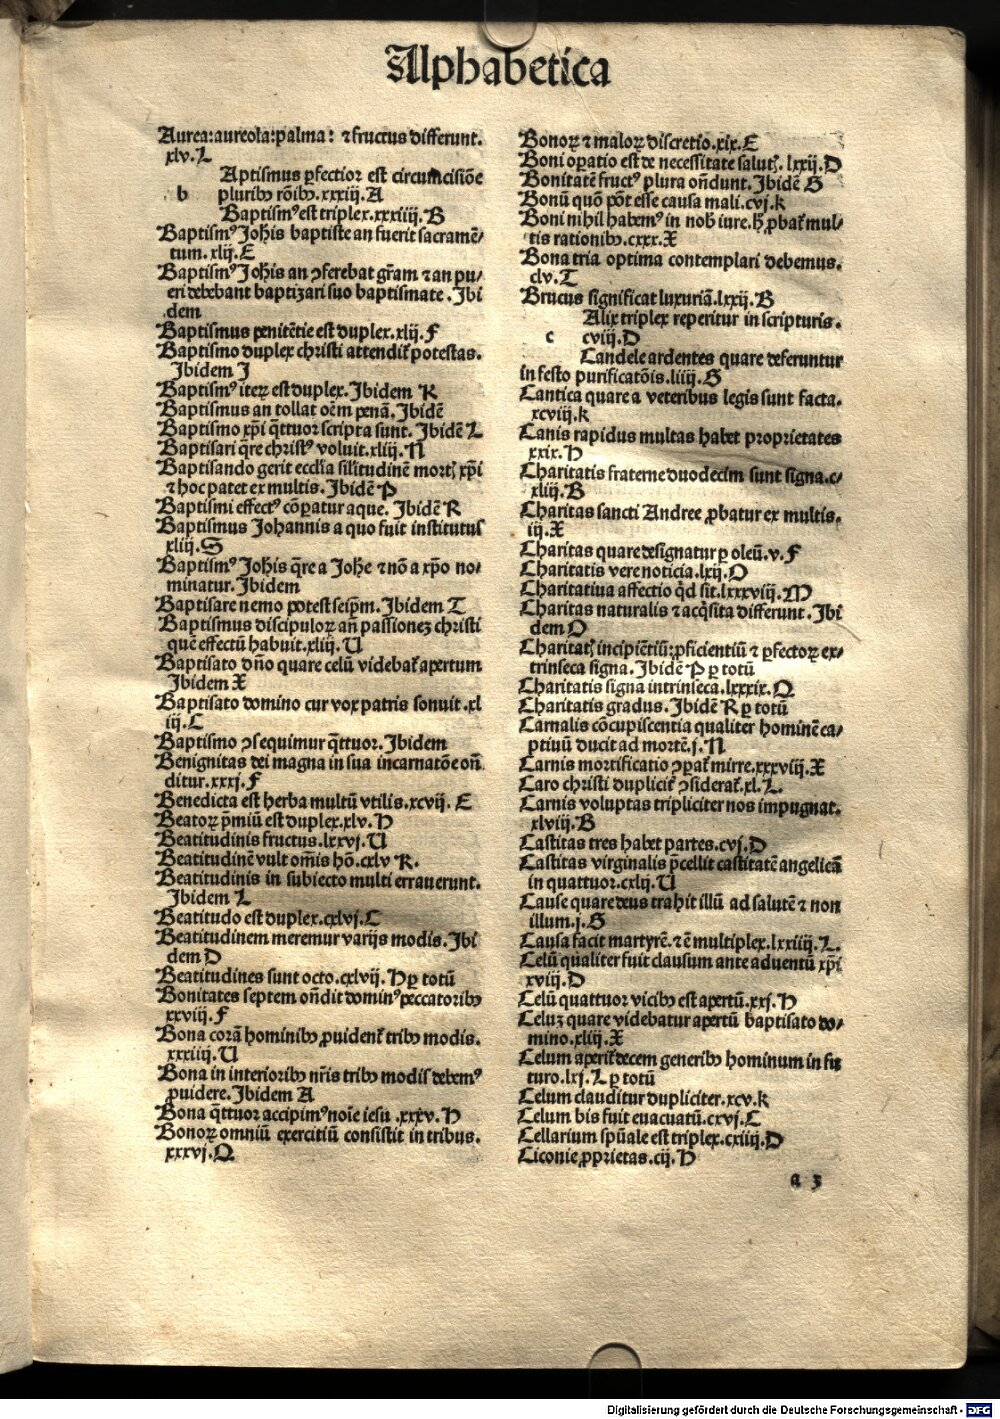 Alphabetica
Aurea:aureola:palma: ⁊ fructus differunt.
xlv.L
Aptismus ꝑfectior est circumcisiōe
b pluribꝰ rōibꝰ.xxxiij.A
Baptismꝰ est triplex.xxxiiij.B
Baptismꝰ Joh̄is baptiste an fuerit sacramē⸗
tum.xlij.E
Baptismꝰ Joh̄is an ꝯferebat gr̄am ⁊ an pu⸗
eri debebant baptizari suo baptismate. Ibi
dem
Baptismus penitētie est duplex.xlij.F
Baptismo duplex christi attendit᷑ potestas.
Ibidem I
Baptismꝰ iteꝝ est duplex.Ibidem K
Baptismus an tollat oēm penā.Ibidē
Baptismo xp̄i q̄ttuor scripta sunt. Ibidē L
Baptisari q̄re christꝰ voluit.xliij.N
Baptisando gerit ecclīa sil̄itudinē mortꝭ xp̄i
⁊ hoc patet ex multis.Ibidē P
Baptismi effectꝰ cōꝑatur aque. Ibidē R
Baptismus Johannis a quo fuit institutus
xliij.S
Baptismꝰ Joh̄is q̄re a Joh̄e ⁊ nō a xp̄o no⸗
minatur.Ibidem
Baptisare nemo potest seip̄m.Ibidem T
Baptismus discipuloꝝ an̄ passionez christi
quē effectū habuit.xliij.U
Baptisato dn̄o quare celū videbat᷑ apertum
Ibidem X
Baptisato domino cur vox patris sonuit.xl
iij.C
Baptismo ꝯsequimur q̄ttuor.Ibidem
Benignitas dei magna in sua incarnatōe on̄
ditur.xxxj.F
Benedicta est herba multū vtilis.xcvij. E
Beatoꝝ p̄miū est duplex.xlv.H
Beatitudinis fructus.lxxvj.U
Beatitudinē vult om̄is hō.cxlv K.
Beatitudinis in subiecto multi errauerunt.
Ibidem L
Beatitudo est duplex.cxlvj.C
Beatitudinem meremur varijs modis.Ibi
dem D
Beatitudines sunt octo.cxlvij.H ꝑ totū
Bonitates septem on̄dit dominꝰ peccatoribꝰ
xxviij.F
Bona corā hominibꝰ ꝓuident᷑ tribꝰ modis.
xxxiiij.U
Bona in interioribꝰ nr̄is tribꝰ modis debemꝰ
ꝓuidere.Ibidem A
Bona q̄ttuor accipimꝰ noīe iesu .xxxv.H
Bonoꝝ omniū exercitiū consistit in tribus.
xxxvj.Q
Bonoꝝ ⁊ maloꝝ discretio.xix.E
Boni oꝑatio est de necessitate salutꝭ. lxxij.D
Bonitatē fructꝰ plura on̄dunt.Ibidē G
Bonū quō pōt esse causa mali.cvj.k
Boni nihil habemꝰ in nob̄ iure.h̄ ꝓbat᷑ mul⸗
tis rationibꝰ.cxxx.X
Bona tria optima contemplari debemus.
clv.T
Brucus significat luxuriā.lxxij.B
Alix triplex reperitur in scripturis.
c cviij.D
Candele ardentes quare deferuntur
in festo purificatōis.liiij.G
Cantica quare a veteribus legis sunt facta.
xcviij.k
Canis rapidus multas habet proprietates
xxix.H
Charitatis fraterne duodecim sunt signa.c⸗
xliij.B
Charitas sancti Andree ꝓbatur ex multis.
iij.X
Charitas quare designatur ꝑ oleū.v.F
Charitatis vere noticia.lxij.O
Charitatiua affectio qd̄ sit.lxxxviij.M
Charitas naturalis ⁊ acq̄sita differunt.Ibi
dem O
Charitatꝭ incipiētiū: ꝓficientiū ⁊ ꝑfectoꝝ ex⸗
trinseca signa. Ibidē P ꝑ totū
Charitatis signa intrinseca.lxxxix.Q
Charitatis gradus. Ibidē R ꝑ totū
Carnalis cōcupiscentia qualiter hominē ca⸗
ptiuū ducit ad mortē.j.N
Carnis mortificatio ꝯꝑat᷑ mirre.xxxviij.X
Caro christi duplicit᷑ ꝯsiderat᷑.xl.L.
Carnis voluptas tripliciter nos impugnat.
xlviij.B
Castitas tres habet partes.cvj.D
Castitas virginalis p̄cellit castitatē angelicā
in quattuor.cxlij.U
Cause quare deus trahit illū ad salutē ⁊ non
illum.j.G
Causa facit martyrē.⁊ ē multiplex.lxxiiij.L.
Celū qualiter fuit clausum ante aduentū xp̄i
xviij.D
Celū quattuor vicibꝰ est apertū.xxj.H
Celuz quare videbatur apertū baptisato do⸗
mino.xliij.X
Celum aperit᷑ decem generibꝰ hominum in fu
turo.lxj.L ꝑ totū
Celum clauditur dupliciter.xcv.k
Celum bis fuit euacuatū.cxvj.C
Cellarium sp̄uale est triplex.cxiiij.D
Ciconie ꝓprietas.cij.H
a 3
Digitalisierung gefördert durch die Deutsche Forschungsgemeinschaft - DFG